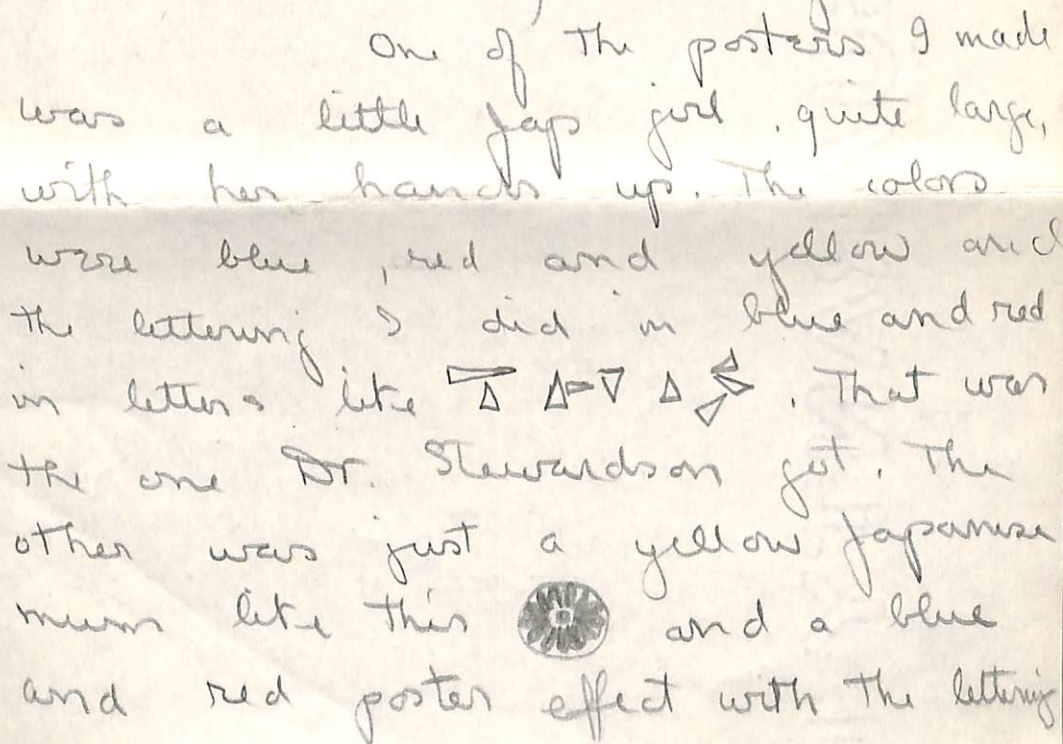 One of the posters I made
was a little Jap girl, quite large,
with her hands up. The colors
were blue, red and yellow and
the lettering I did in blue and red
in letters like THIS. That was
the one Dr. Stewardson got. The
other was just a yellow Japanese
mum like this and a blue
and red poster effect with the lettering